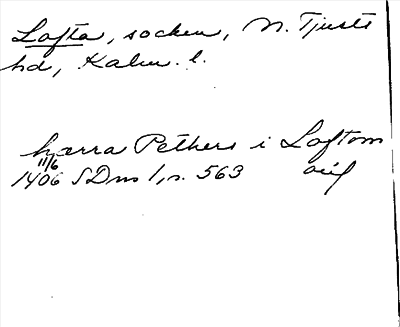 Lofta, socken, N. Tjusts
hd, Kalm. l.
hærra Pethers i Loftom
11/6
1406 SDns 1, s. 563 avs